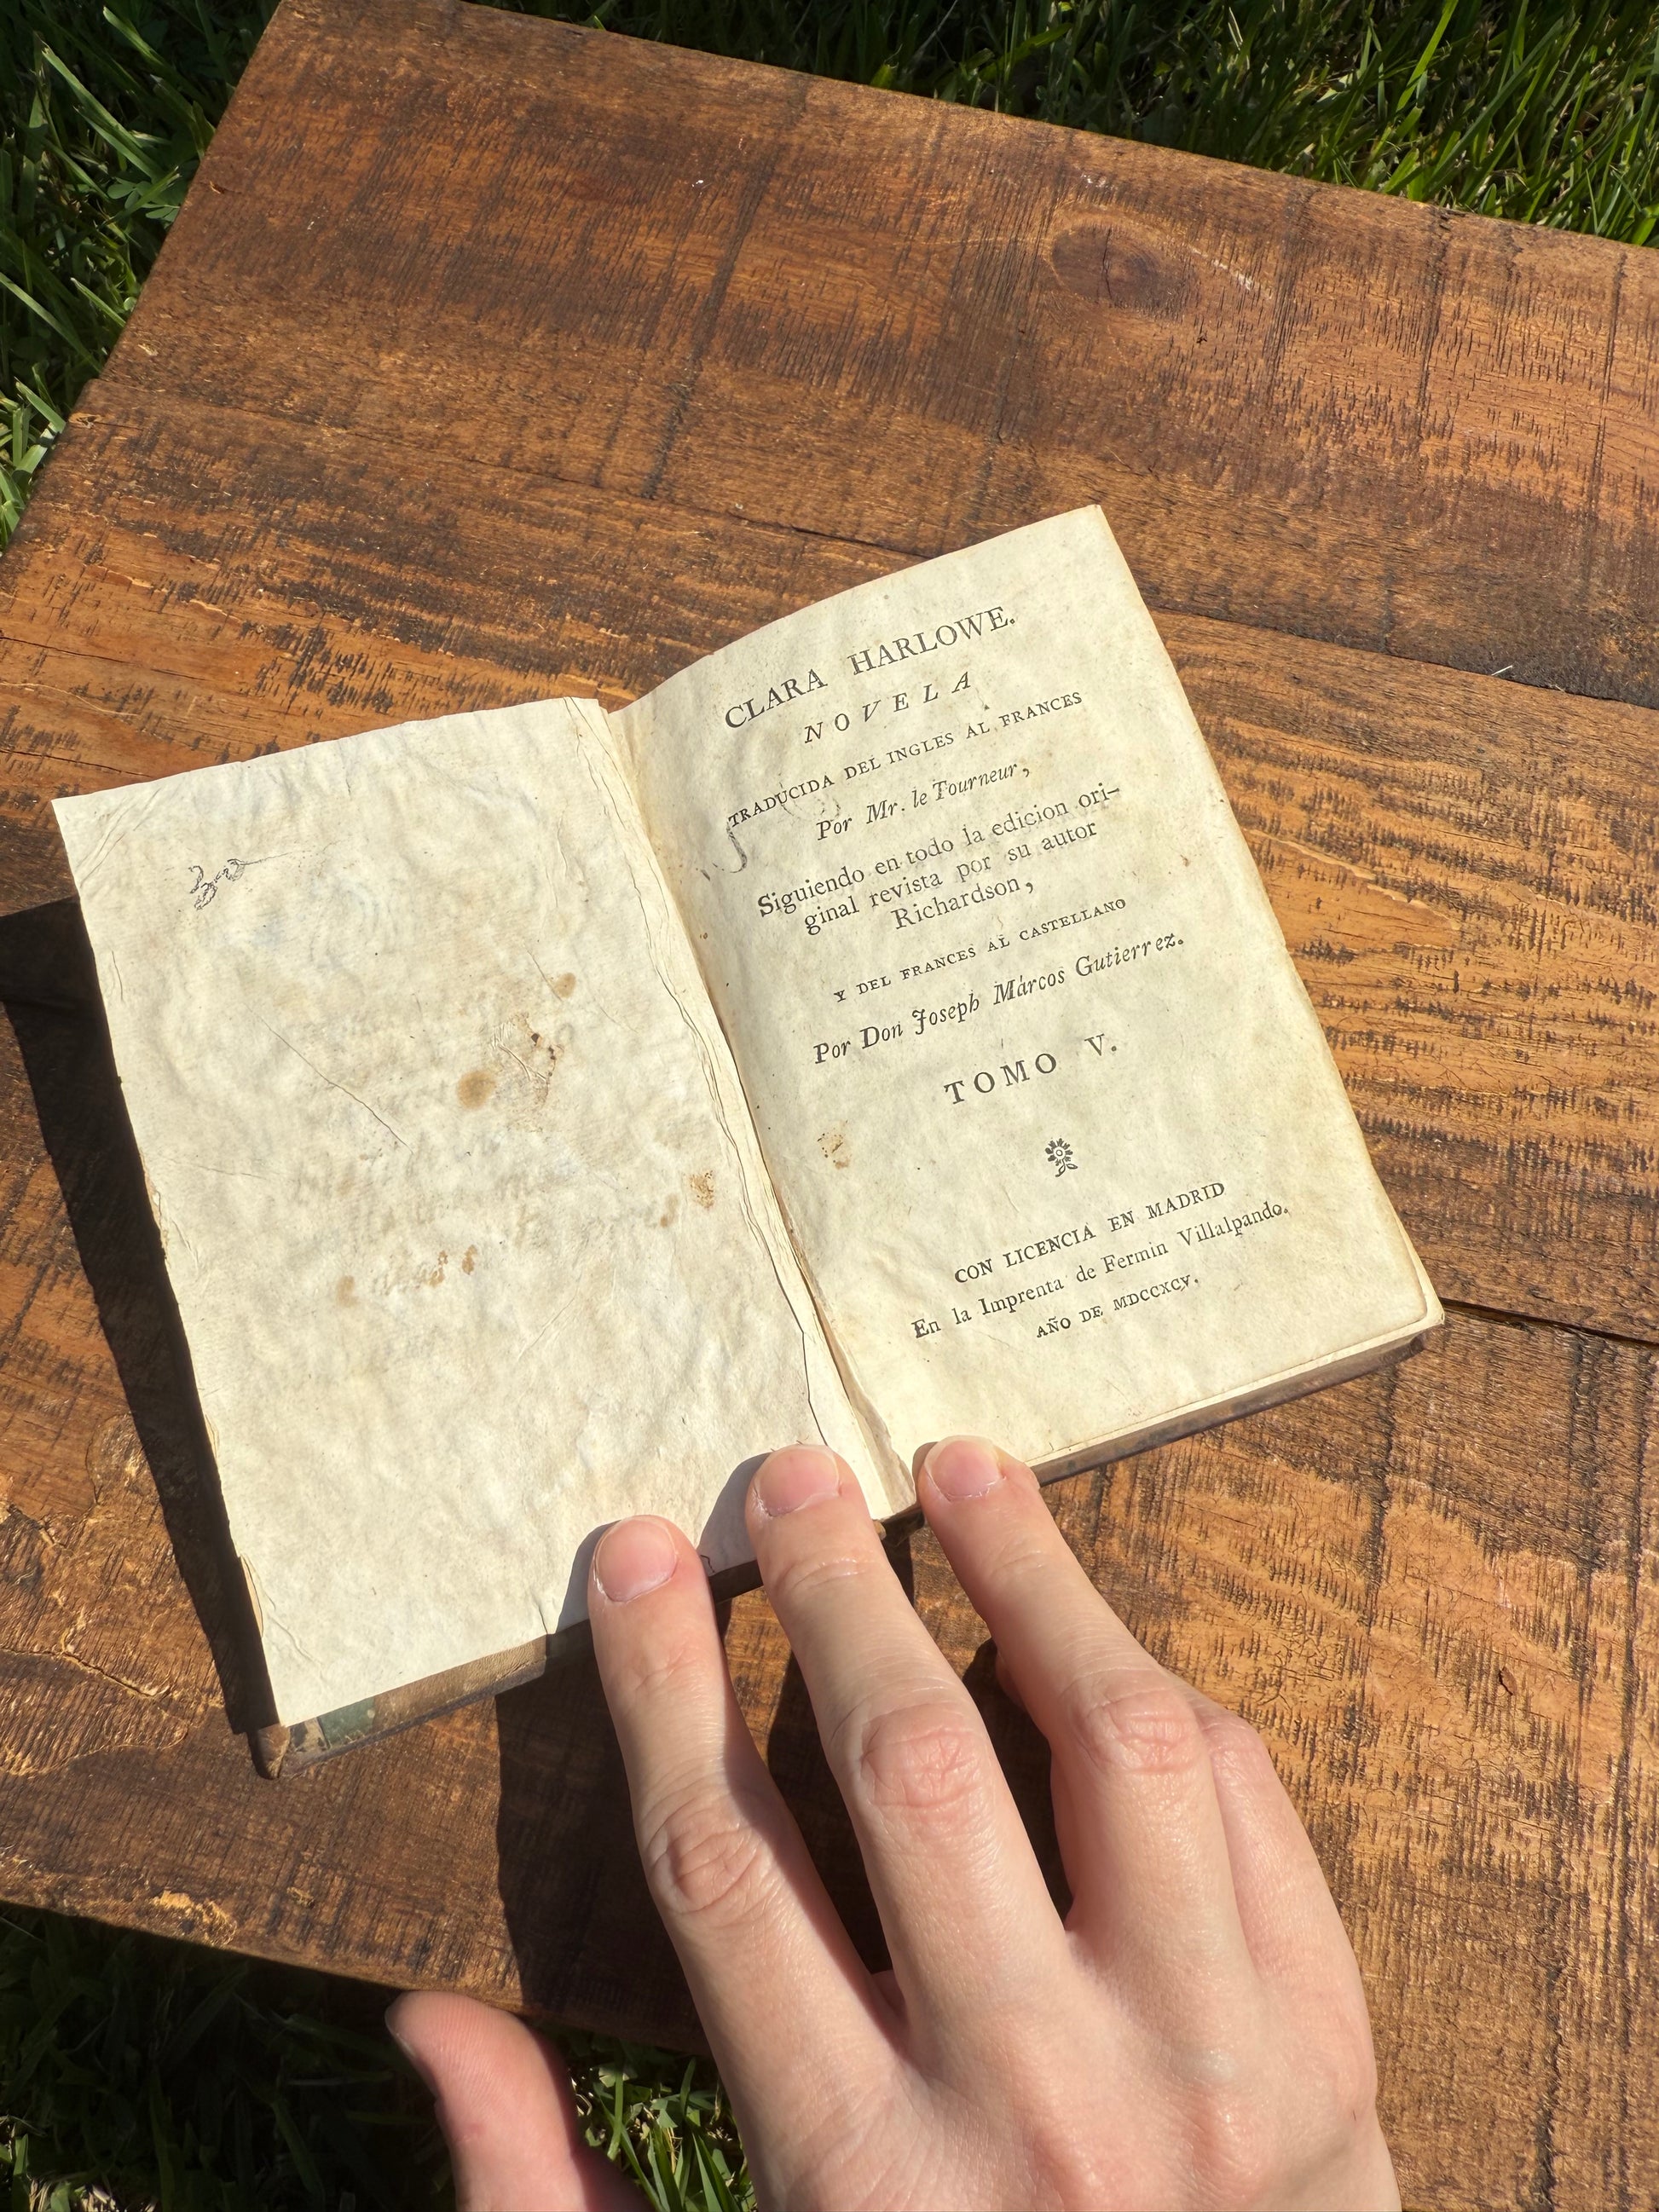 30
CLARA HARLOWE.
NOVELA
TRADUCIDA DEL INGLES AL FRANCES
Por Mr. le Tourneur,
Siguiendo en todo la edicion ori-
ginal revista por su autor
Richardson,
Y DEL FRANCES AL CASTELLANO
Por Don Joseph Márcos Gutierrez.
TOMO V.
CON LICENCIA EN MADRID
En la Imprenta de Fermin Villalpando.
AÑO DE MDCCXCV.